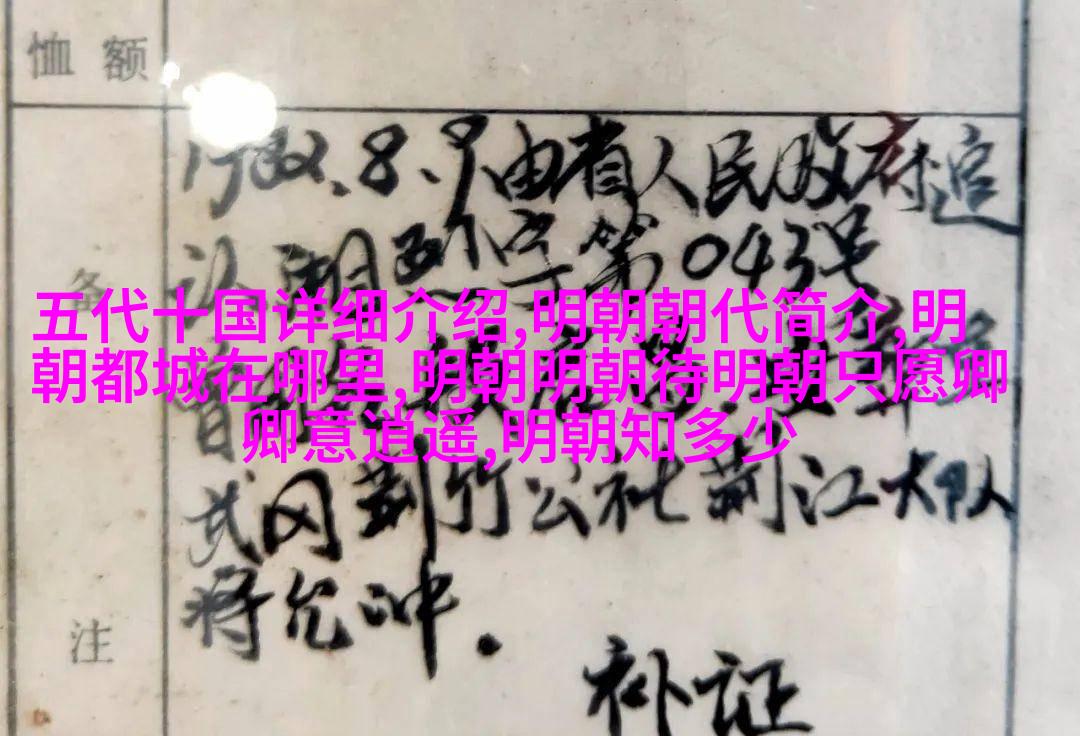 恤额
1982.8.9由省人民政府追
认湘烈字第043号
备
五代十国详细介绍,明朝朝代简介,明
朝都城在哪里,明朝明朝待明朝只愿卿
卿意逍遥,明朝知多少
武冈荆竹公社荆江大队
将允冲.
注
补证